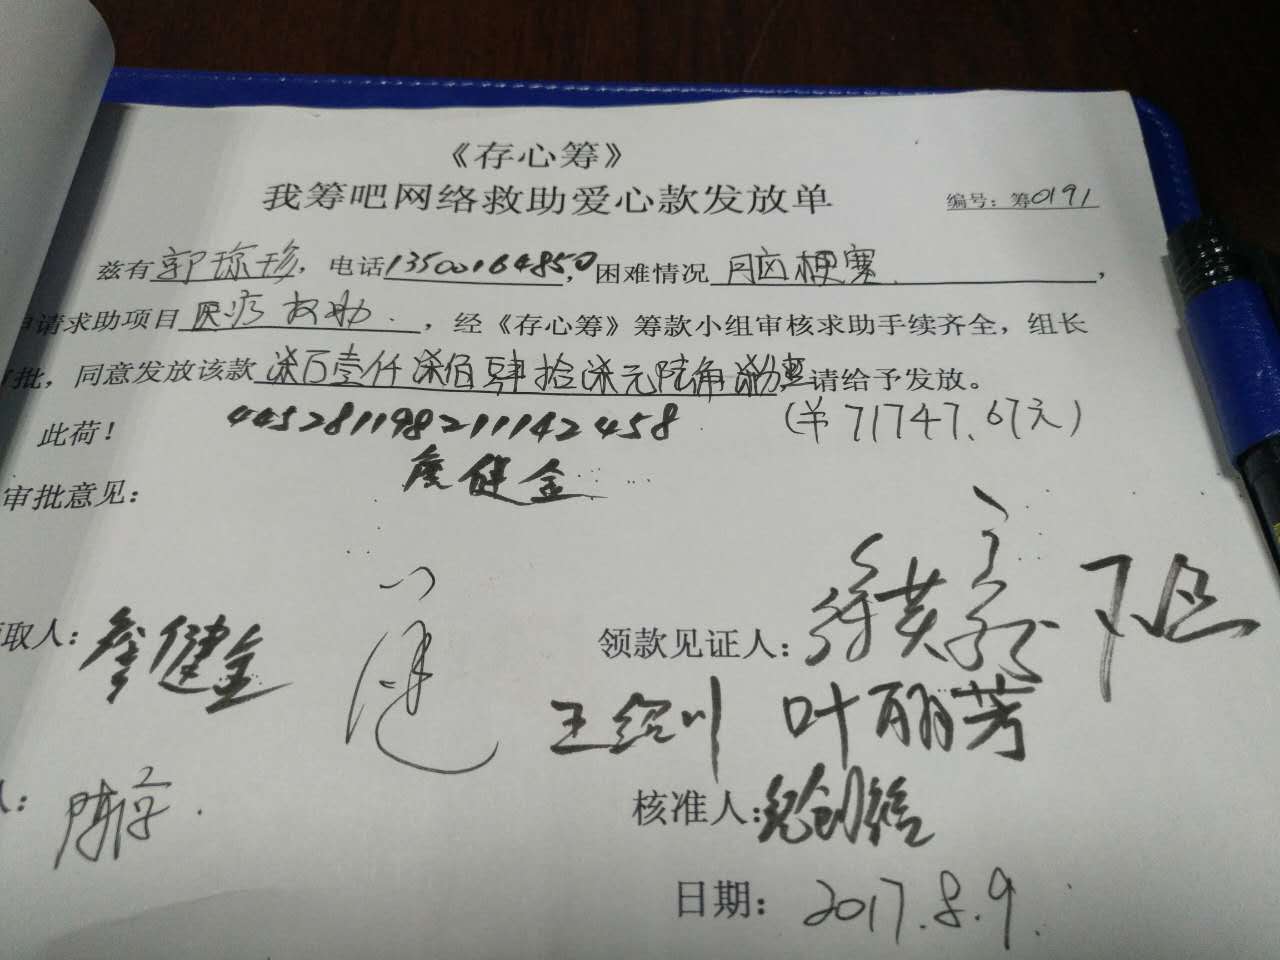 《存心筹》
我筹吧网络救助爱心款发放单
编号：筹0191
兹有郭琼珍，电话13500164850，困难情况脑梗塞，
申请求助项目医疗救助，经《存心筹》筹款小组审核求助手续齐全，组长
批，同意发放该款柒万壹仟柒佰肆拾柒元陆角柒分整请给予发放。
此荷！ 445281198211142458 （￥71747.67元）
詹健金
审批意见：
取人：詹健金 领款见证人：
王绍川 叶丽芳
人： 核准人：
日期：2017.8.9.